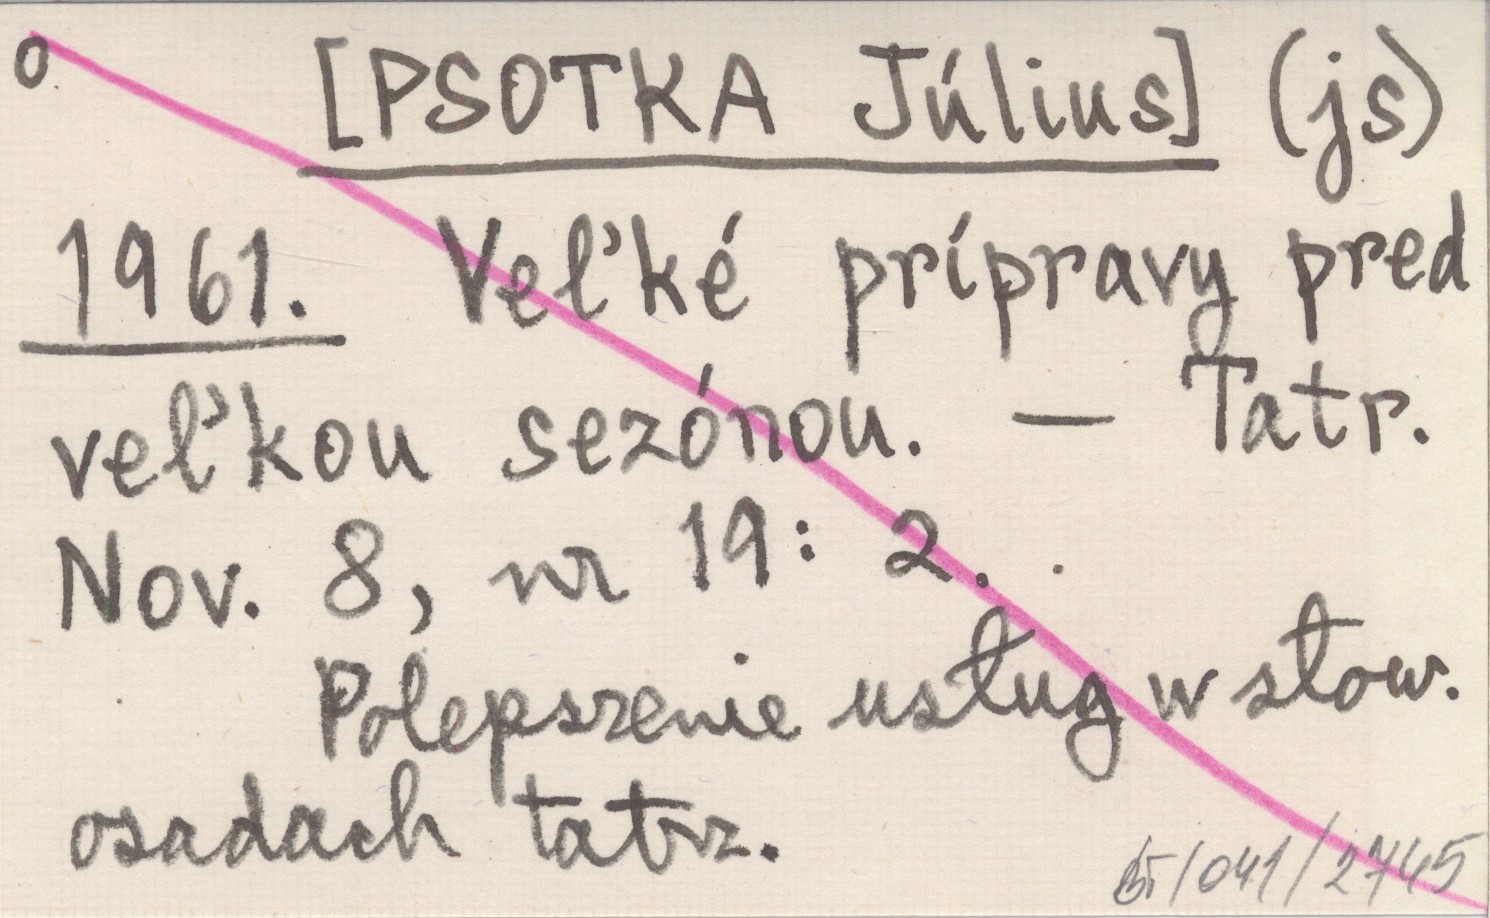 o [PSOTKA Július] (js)
1961. Veľké prípravy pred
veľkou sezónou. — Tatr.
Nov. 8, nr 19: 2.
Polepszenie usług w słow.
osadach tatrz.
/041/2745